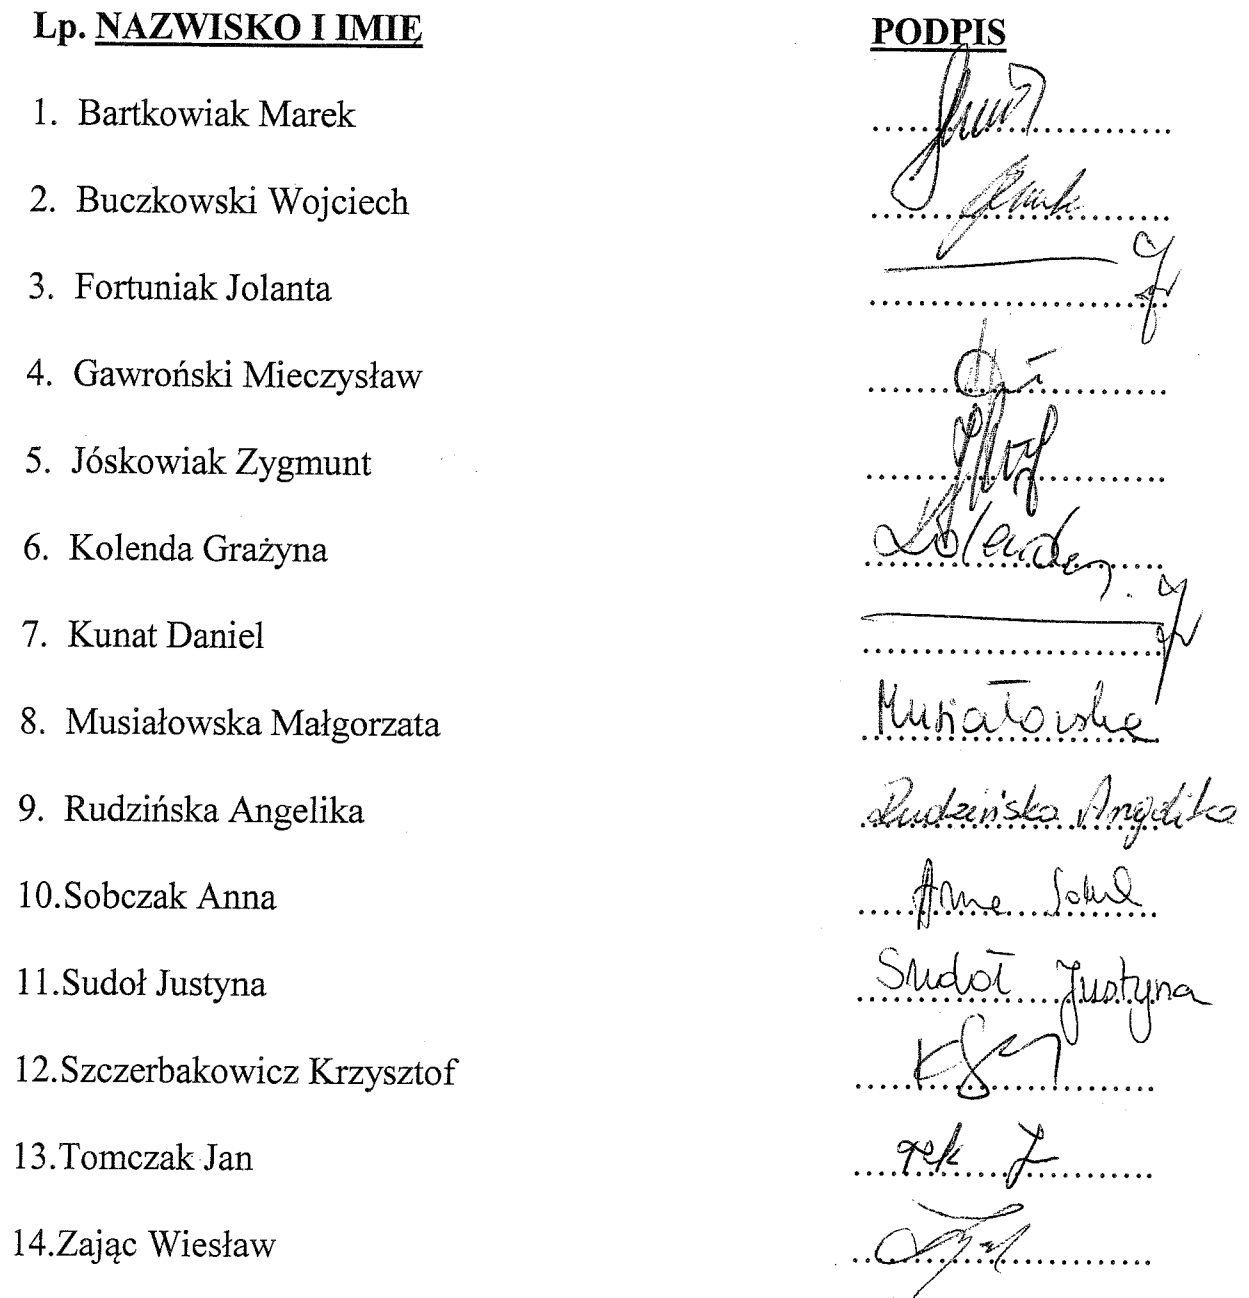 Lp. NAZWISKO I IMIĘ PODPIS
1. Bartkowiak Marek
2. Buczkowski Wojciech
3. Fortuniak Jolanta
4. Gawroński Mieczysław
5. Jóskowiak Zygmunt
6. Kolenda Grażyna Kolenda
7. Kunat Daniel
8. Musiałowska Małgorzata Musiałowska
9. Rudzińska Angelika Rudzińska Angelika
10.Sobczak Anna Anna
11.Sudoł Justyna Sudoł Justyna
12.Szczerbakowicz Krzysztof
13.Tomczak Jan
14.Zając Wiesław